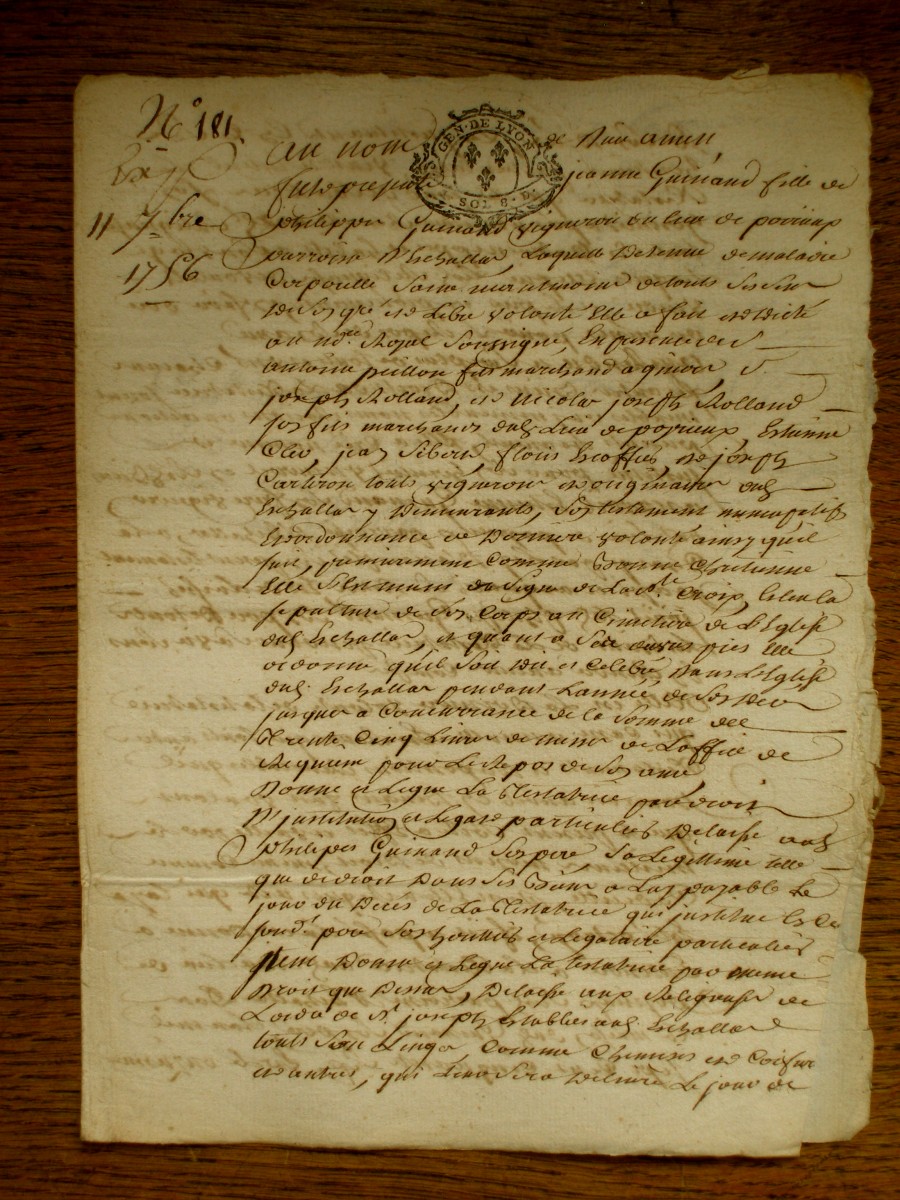 N° 181
11 7bre
1756
GEN. DE LYON
SOL 8. D.
au nom de Dieu amen
fut presente jeanne Guinand fille de
philippe Guinand vigneron du lieu de
parroisse d'Echallas, Laquelle detenue de maladie
Corporelle saine neanmoins de touts ses sens
de son gré et Libre volonté Elle a fait et dicté
au nore Royal soussigné, En presence de Sr
antoine peillon fils marchand a givors, Sr
joseph Rolland, et Nicolas joseph Rolland
son fils marchands dud. Lieu de Estienne
jean flouis et joseph
touts vignerons et originaires dud.
Echallas y Demeurants, son testament nuncupatif
Et ordonnance de Derniere volonté ainsy quil
suit, premierement Comme Bonne Chretienne
Elle s'est munie du signe de La Ste Croix, Eslu la
sepulture de son Corps au Cimetiere de L'Eglise
dud. Echallas, et quant a ses œuvres pies Elle
ordonne quil soit dit et Celebré Dans L'Eglise
dud. Echallas pendant L'année de son Deces
jusques a Concurrance de la somme de
Trente Cinq Livres de messes de L'office de
Requiem pour Le Repos de son ame
Donne et Legue La Testatrice par droit
D'institution et Legat particulier Delaisse aud.
philipes Guinand son pere, sa Legittime telle
que de droit Dans ses Biens a Luy payable Le
jour du Deces de La Testatrice qui institue Led.
Guind. pour son heritier et Legataire particulier
jtem Donne et Legue La Testatrice par meme
Droit que Dessus, Delaisse aux Religieuses de
L'ordre de St. joseph Etablies aud. Echallas
touts son Linge, Comme Chemises et Coiffures
et autres, qui Leur sera delivré Le jour de